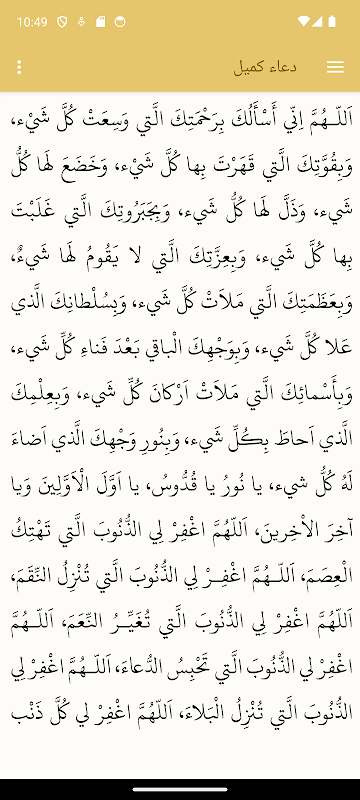 10:49
دعاء كميل
اَللّـهُمَّ اِنّي أَسْأَلُكَ بِرَحْمَتِكَ الَّتي وَسِعَتْ كُلَّ شَيْء،
وَبِقُوَّتِكَ الَّتي قَهَرْتَ بِها كُلَّ شَيْء، وَخَضَعَ لَها كُلُّ
شَيء، وَذَلَّ لَها كُلُّ شَيء، وَبِجَبَرُوتِكَ الَّتي غَلَبْتَ
بِها كُلَّ شَيء، وَبِعِزَّتِكَ الَّتي لا يَقُومُ لَها شَيءٌ،
وَبِعَظَمَتِكَ الَّتي مَلاَتْ كُلَّ شَيء، وَبِسُلْطانِكَ الَّذي
عَلا كُلَّ شَيء، وَبِوَجْهِكَ الْباقي بَعْدَ فَناءِ كُلِّ شَيء،
وَبِأَسْمائِكَ الَّتي مَلاَتْ اَرْكانَ كُلِّ شَيء، وَبِعِلْمِكَ
الَّذي اَحاطَ بِكُلِّ شَيء، وَبِنُورِ وَجْهِكَ الَّذي اَضاءَ
لَهُ كُلُّ شيء، يا نُورُ يا قُدُّوسُ، يا اَوَّلَ الْاَوَّلِينَ وَيا
آخِرَ الاْخِرينَ، اَللّهُمَّ اغْفِرْ لِي الذُّنُوبَ الَّتي تَهْتِكُ
الْعِصَمَ، اَللّـهُمَّ اغْفِـرْ لِي الذُّنُوبَ الَّتي تُنْزِلُ النِّقَمَ،
اَللّهُمَّ اغْفِرْ لِي الذُّنُوبَ الَّتي تُغَيِّـرُ النِّعَمَ، اَللّـهُمَّ
اغْفِرْ لي الذُّنُوبَ الَّتي تَحْبِسُ الدُّعاءَ، اَللّـهُمَّ اغْفِرْ لِي
الذُّنُوبَ الَّتي تُنْزِلُ الْبَلاءَ، اَللّهُمَّ اغْفِرْ لي كُلَّ ذَنْب